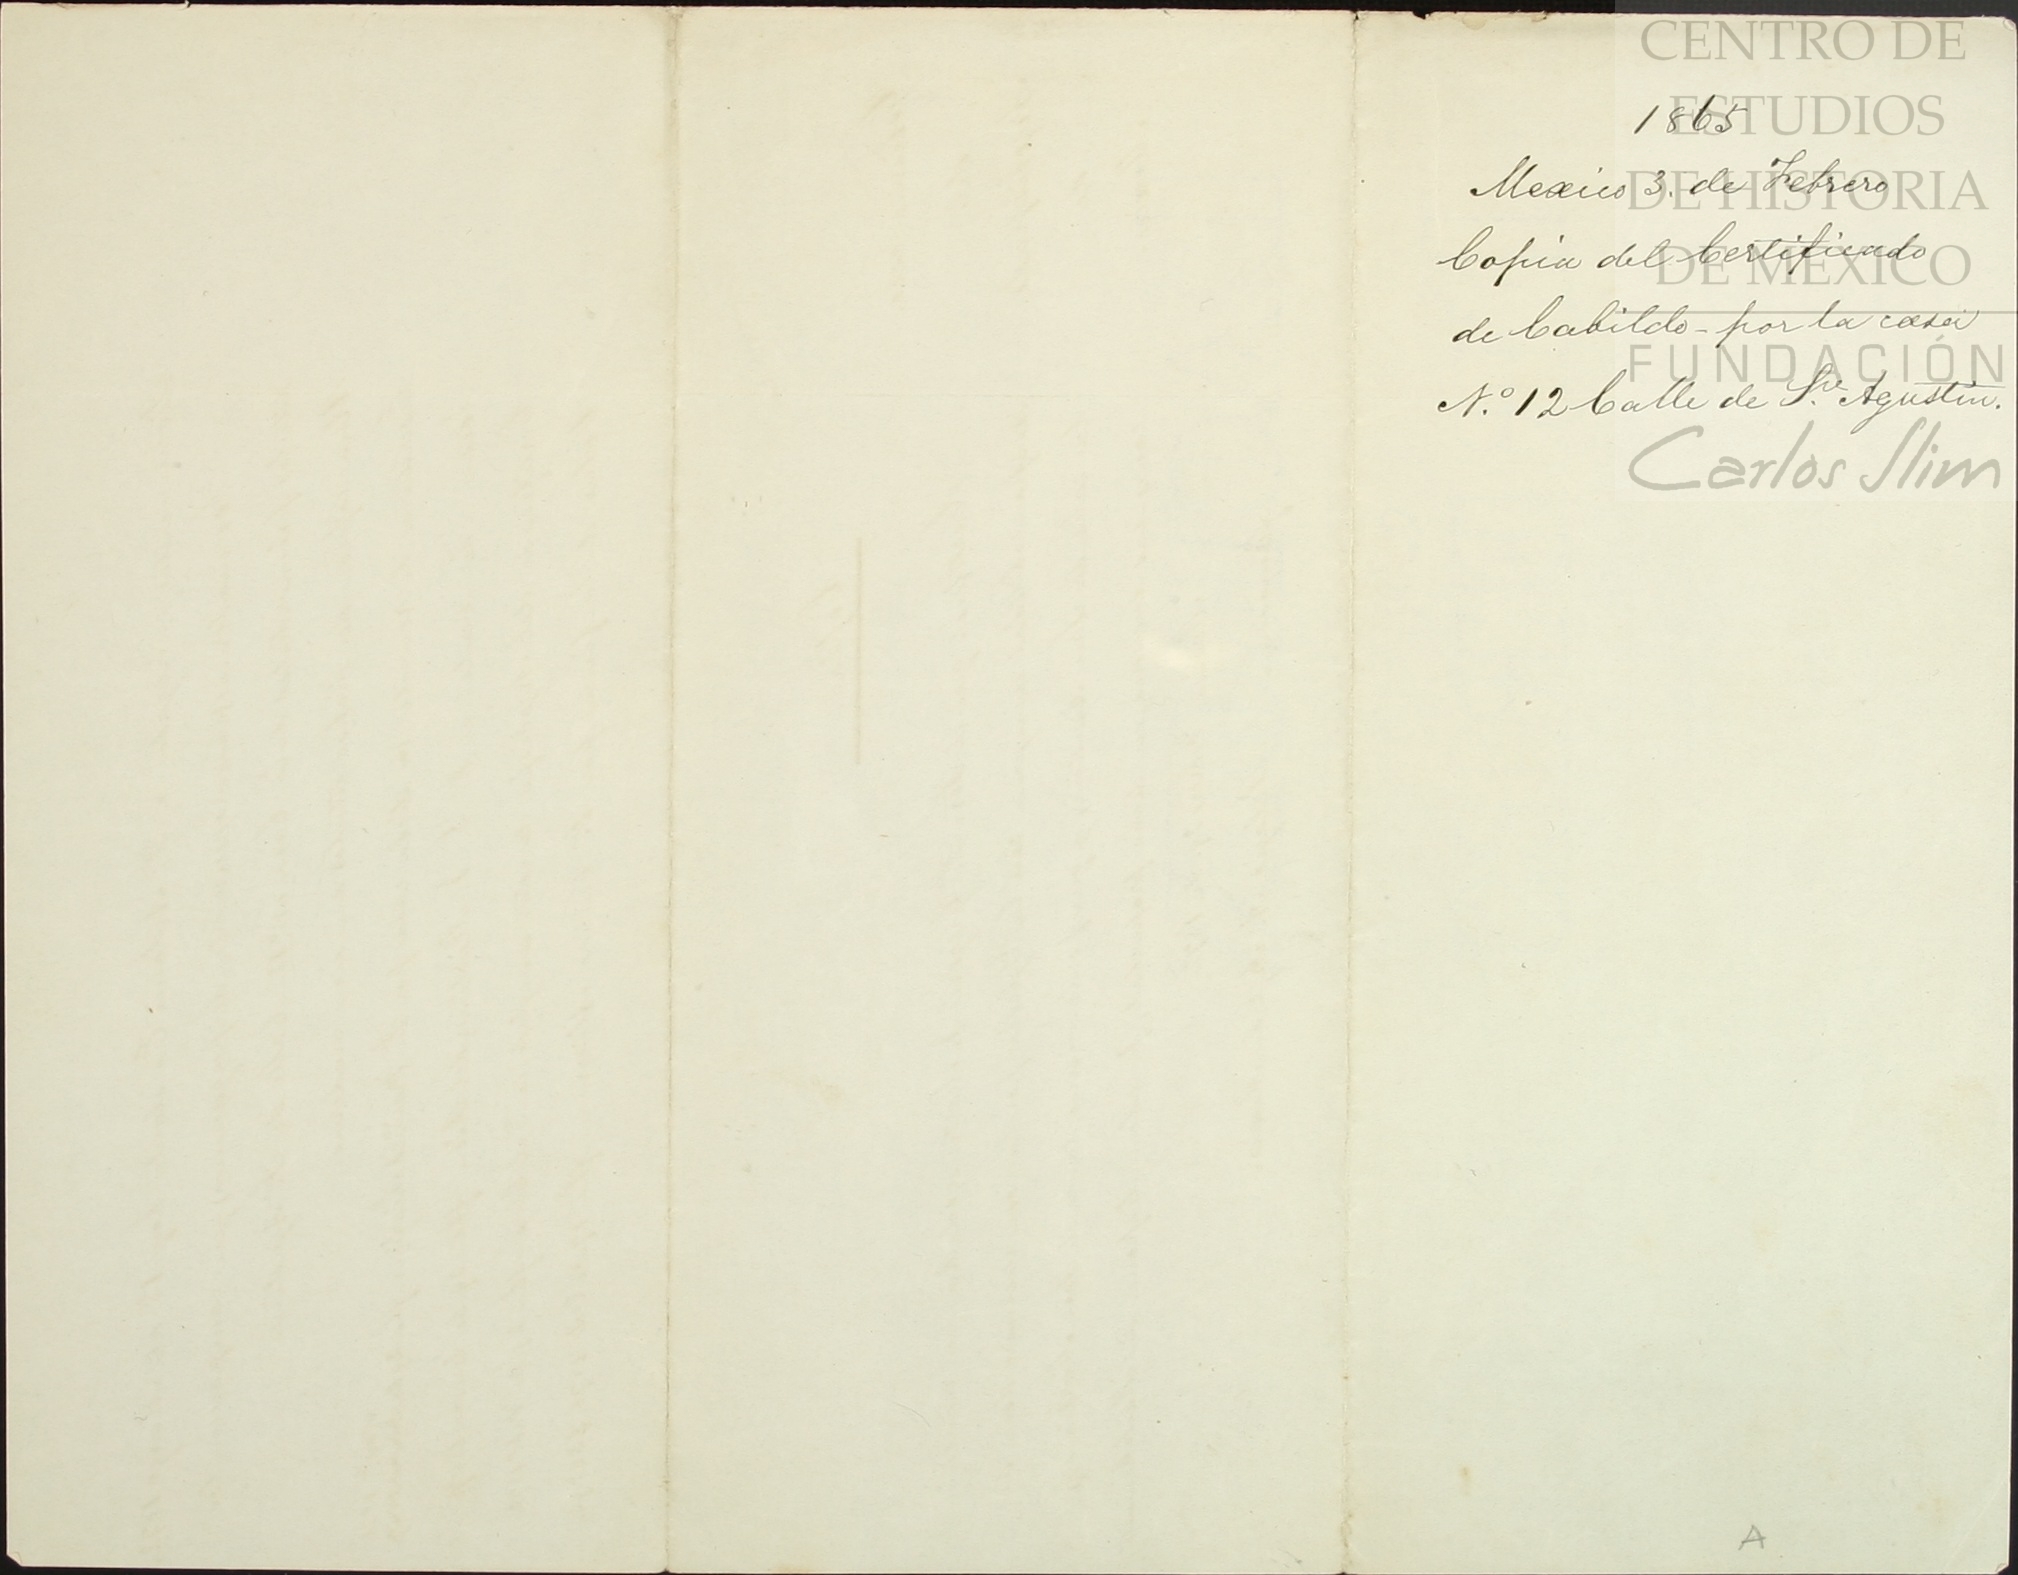 CENTRO DE
ESTUDIOS
DE HISTORIA
DE MÉXICO
FUNDACIÓN
Carlos Slim
1865
Mexico 3. de Febrero
Copia del Certificado
de Cabildo - por la casa
N.º 12 Calle de S.n Agustin.
A